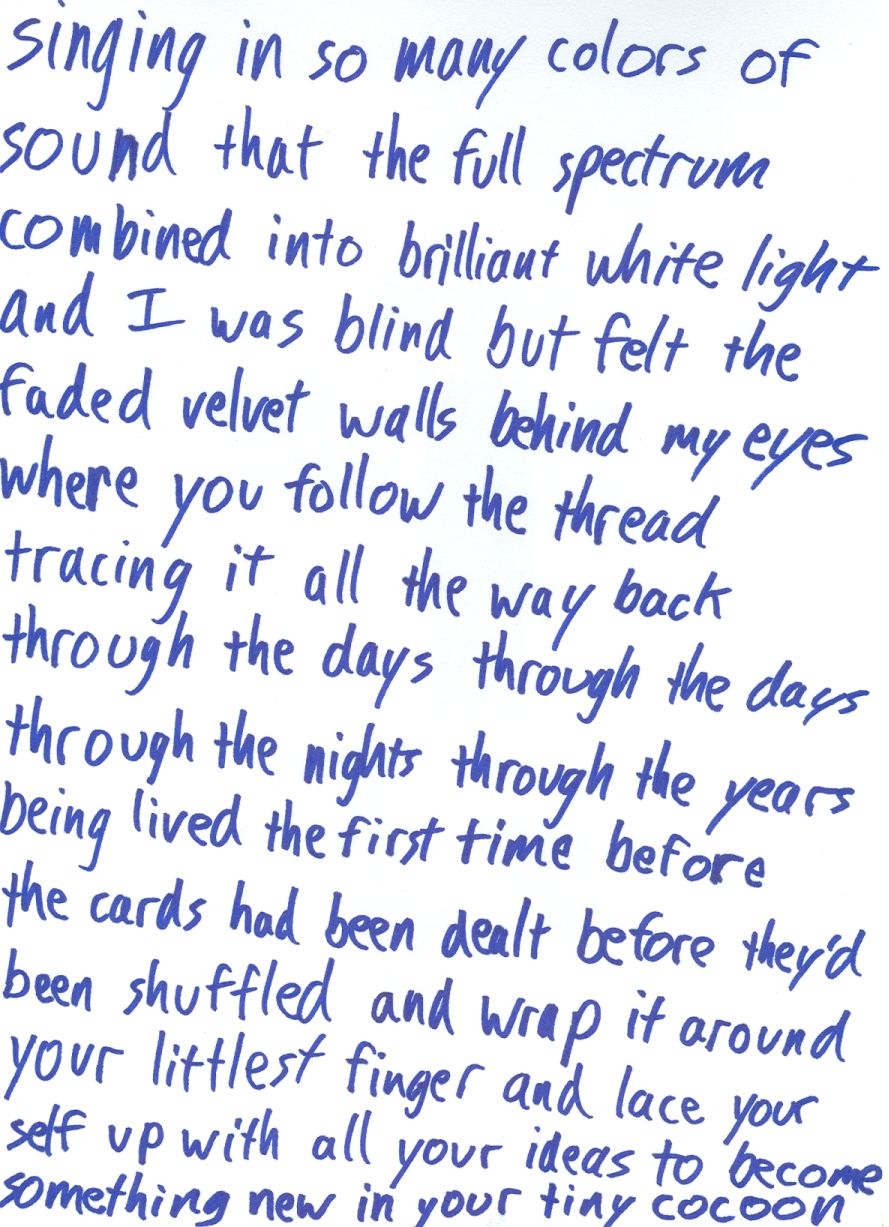 singing in so many colors of
sound that the full spectrum
combined into brilliant white light
and I was blind but felt the
faded velvet walls behind my eyes
where you follow the thread
tracing it all the way back
through the days through the days
through the nights through the years
being lived the first time before
the cards had been dealt before they'd
been shuffled and wrap it around
your littlest finger and lace your
self up with all your ideas to become
something new in your tiny cocoon